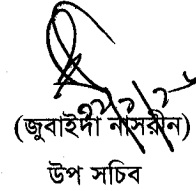 (জুবাইদা নাসরীন)
উপ সচিব